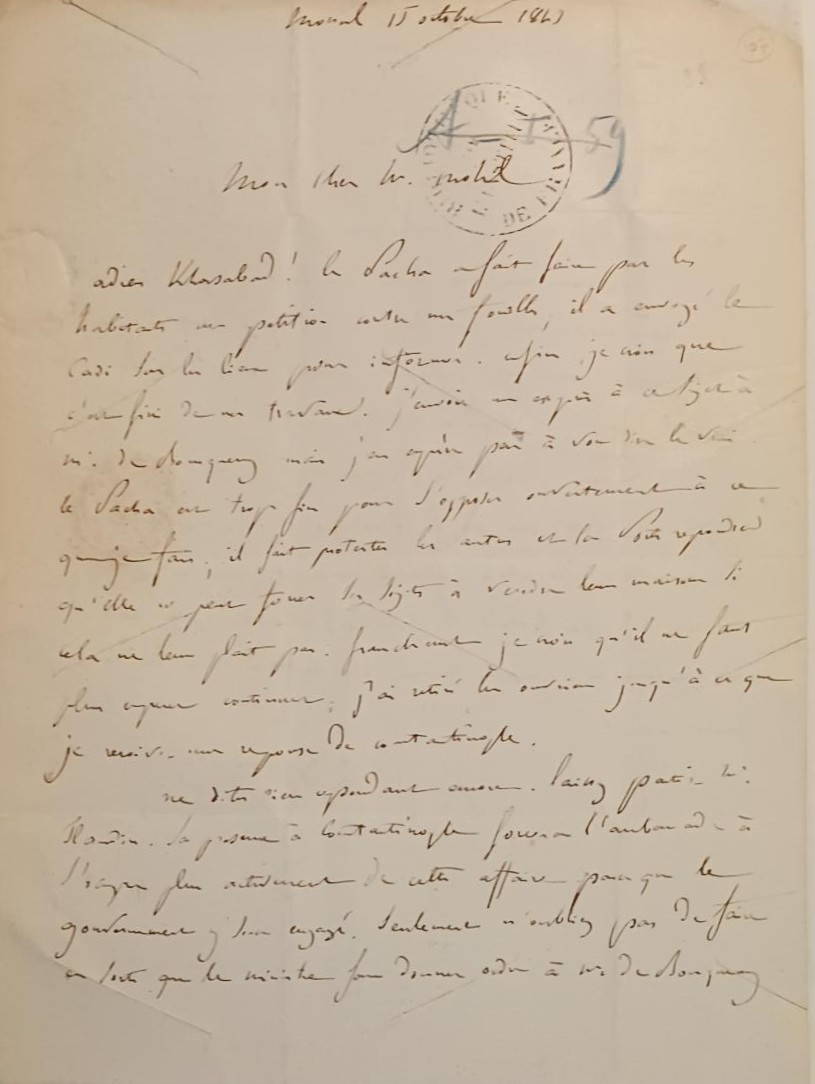 Mossul 15 octobre 1843
104
A-I 59
DE
Mon cher Mr. Mohl
adieu Khorsabad! le Pacha a fait faire par les
habitants une pétition contre mes fouilles, il a envoyé le
Cadi sur les lieux pour informer. enfin je crois que
c'est fini de mes travaux. j'envoie un exprès à ce sujet à
Mr. de Bourqueney mais j'en espère peu à vous dire le vrai.
le Pacha est trop fin pour s'opposer ouvertement à ce
que je fais, il fait protester les autres et la Porte repondra
qu'elle ne peut forcer ses sujets à vendre leurs maisons si
cela ne leur plait pas. franchement je crois qu'il ne faut
plus espérer continuer, j'ai retiré les ouvriers jusqu'à ce que
je reçoive une reponse de Constantinople.
ne dites rien cependant encore. laissez partir Mr.
Flandin. sa présence à Constantinople forcera l'ambassade à
s'occuper plus activement de cette affaire parce que le
gouvernement y sera engagé. seulement n'oubliez pas de faire
en sorte que le ministre fasse donner ordre à Mr. de Bourqueney